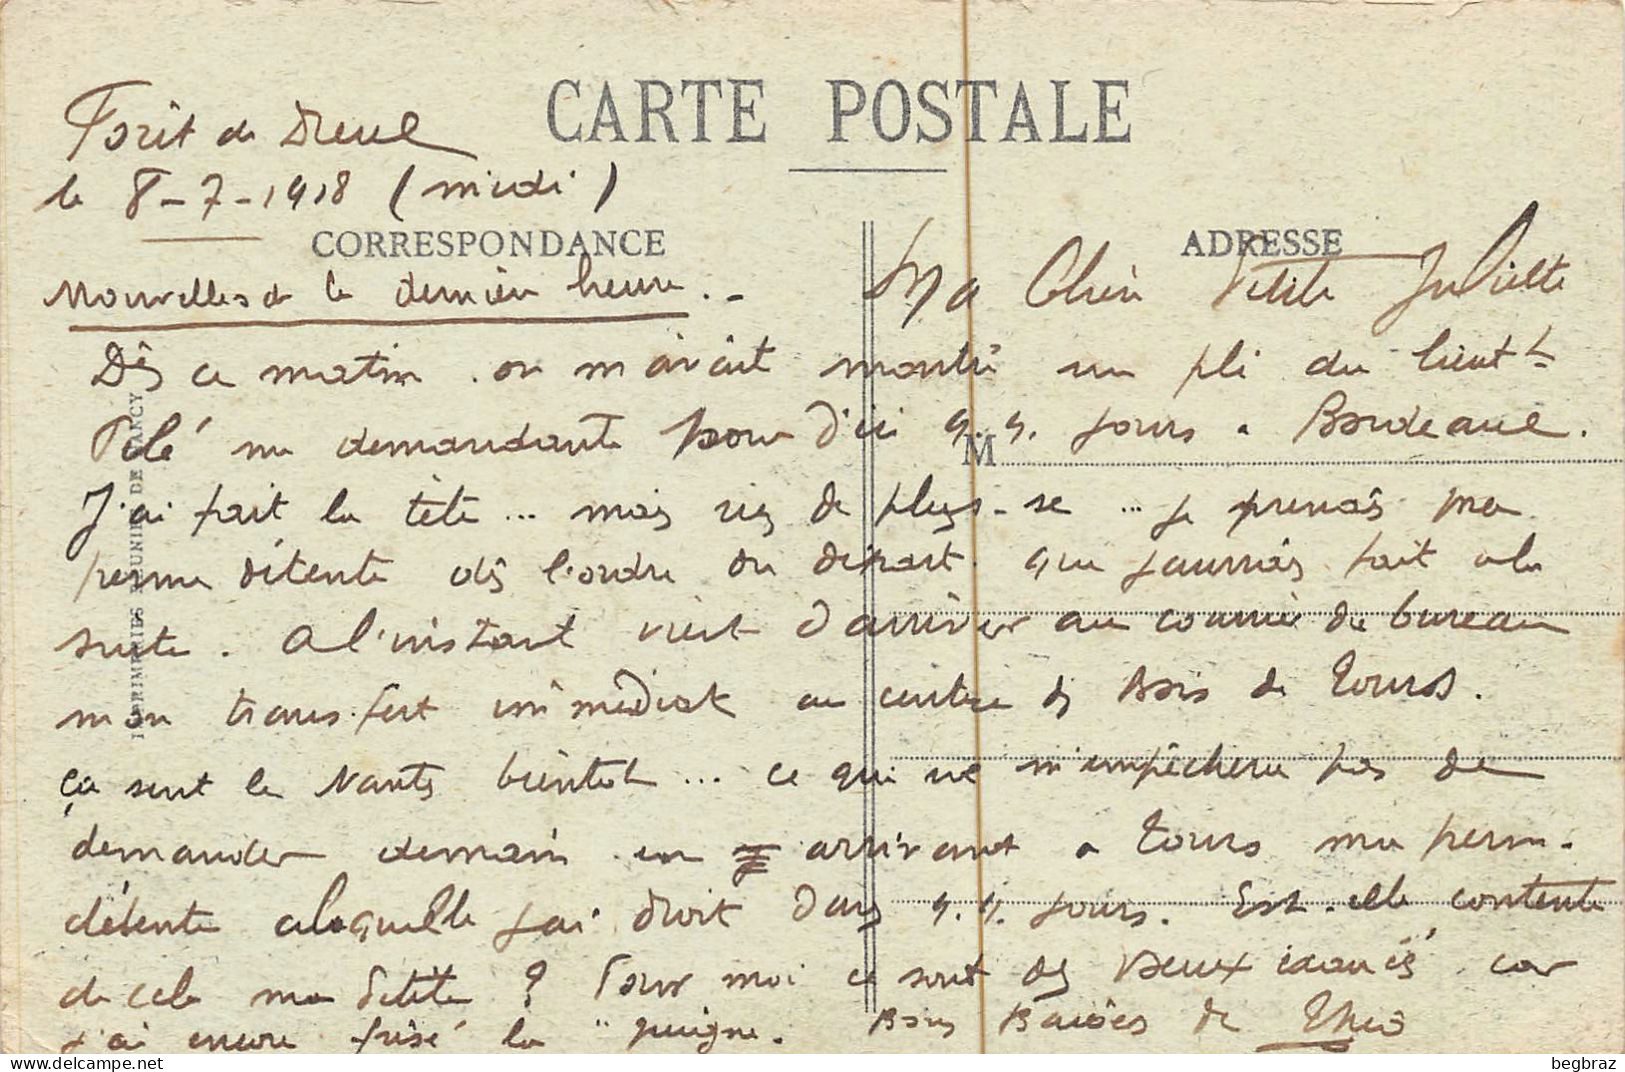 CARTE POSTALE
Forêt de Dreux
le 8-7-1918 (midi)
CORRESPONDANCE
ADRESSE
Nouvelles de la dernière heure.-
Ma Chère Petite Juliette
Dès ce matin on m'avait montré un pli du lieutt
Polé me demandant pour d'ici q.q. jours a Bordeaux.
M
J'ai fait la tête... mais rien de plus - se ... je prenais ma
perme détente dès l'ordre du départ que j'aurais fait de la
suite. A l'instant vient d'arriver au courrier du bureau
mon transfert immédiat au centre de Bois de Tours.
ça sent le Nantes bientôt ... ce qui ne m'empêchera pas de
demander demain en arrivant a Tours ma perm.
détente a laquelle j'ai droit dans q.q. jours. Est-elle contente
de cela ma Petite ? Pour moi ce sont des vœux exaucés car
j'ai encore frisé la "guigne. Bons Baisers de Théo
IMPRIMERIES REUNIES DE NANCY
begbraz